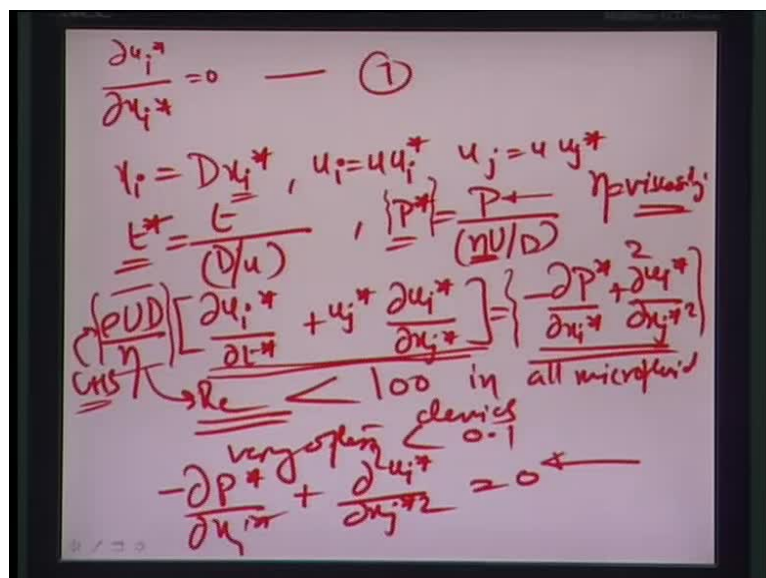 ∂u_i*/∂x_i* = 0 — ①
x_i = D x_i*, u_i = u u_i* u_j = u u_j*
t* = t/(D/u), {P*} = P/(ηU/D) η = viscosity
(ρUD/η) [∂u_i*/∂t* + u_j* ∂u_i*/∂x_j*] = {-∂P*/∂x_i* + ∂²u_i*/∂x_j*²}
LHS → Re < 100 in all microfluid
devices
very often < 0.1
-∂P*/∂x_i* + ∂²u_i*/∂x_j*² = 0 ←